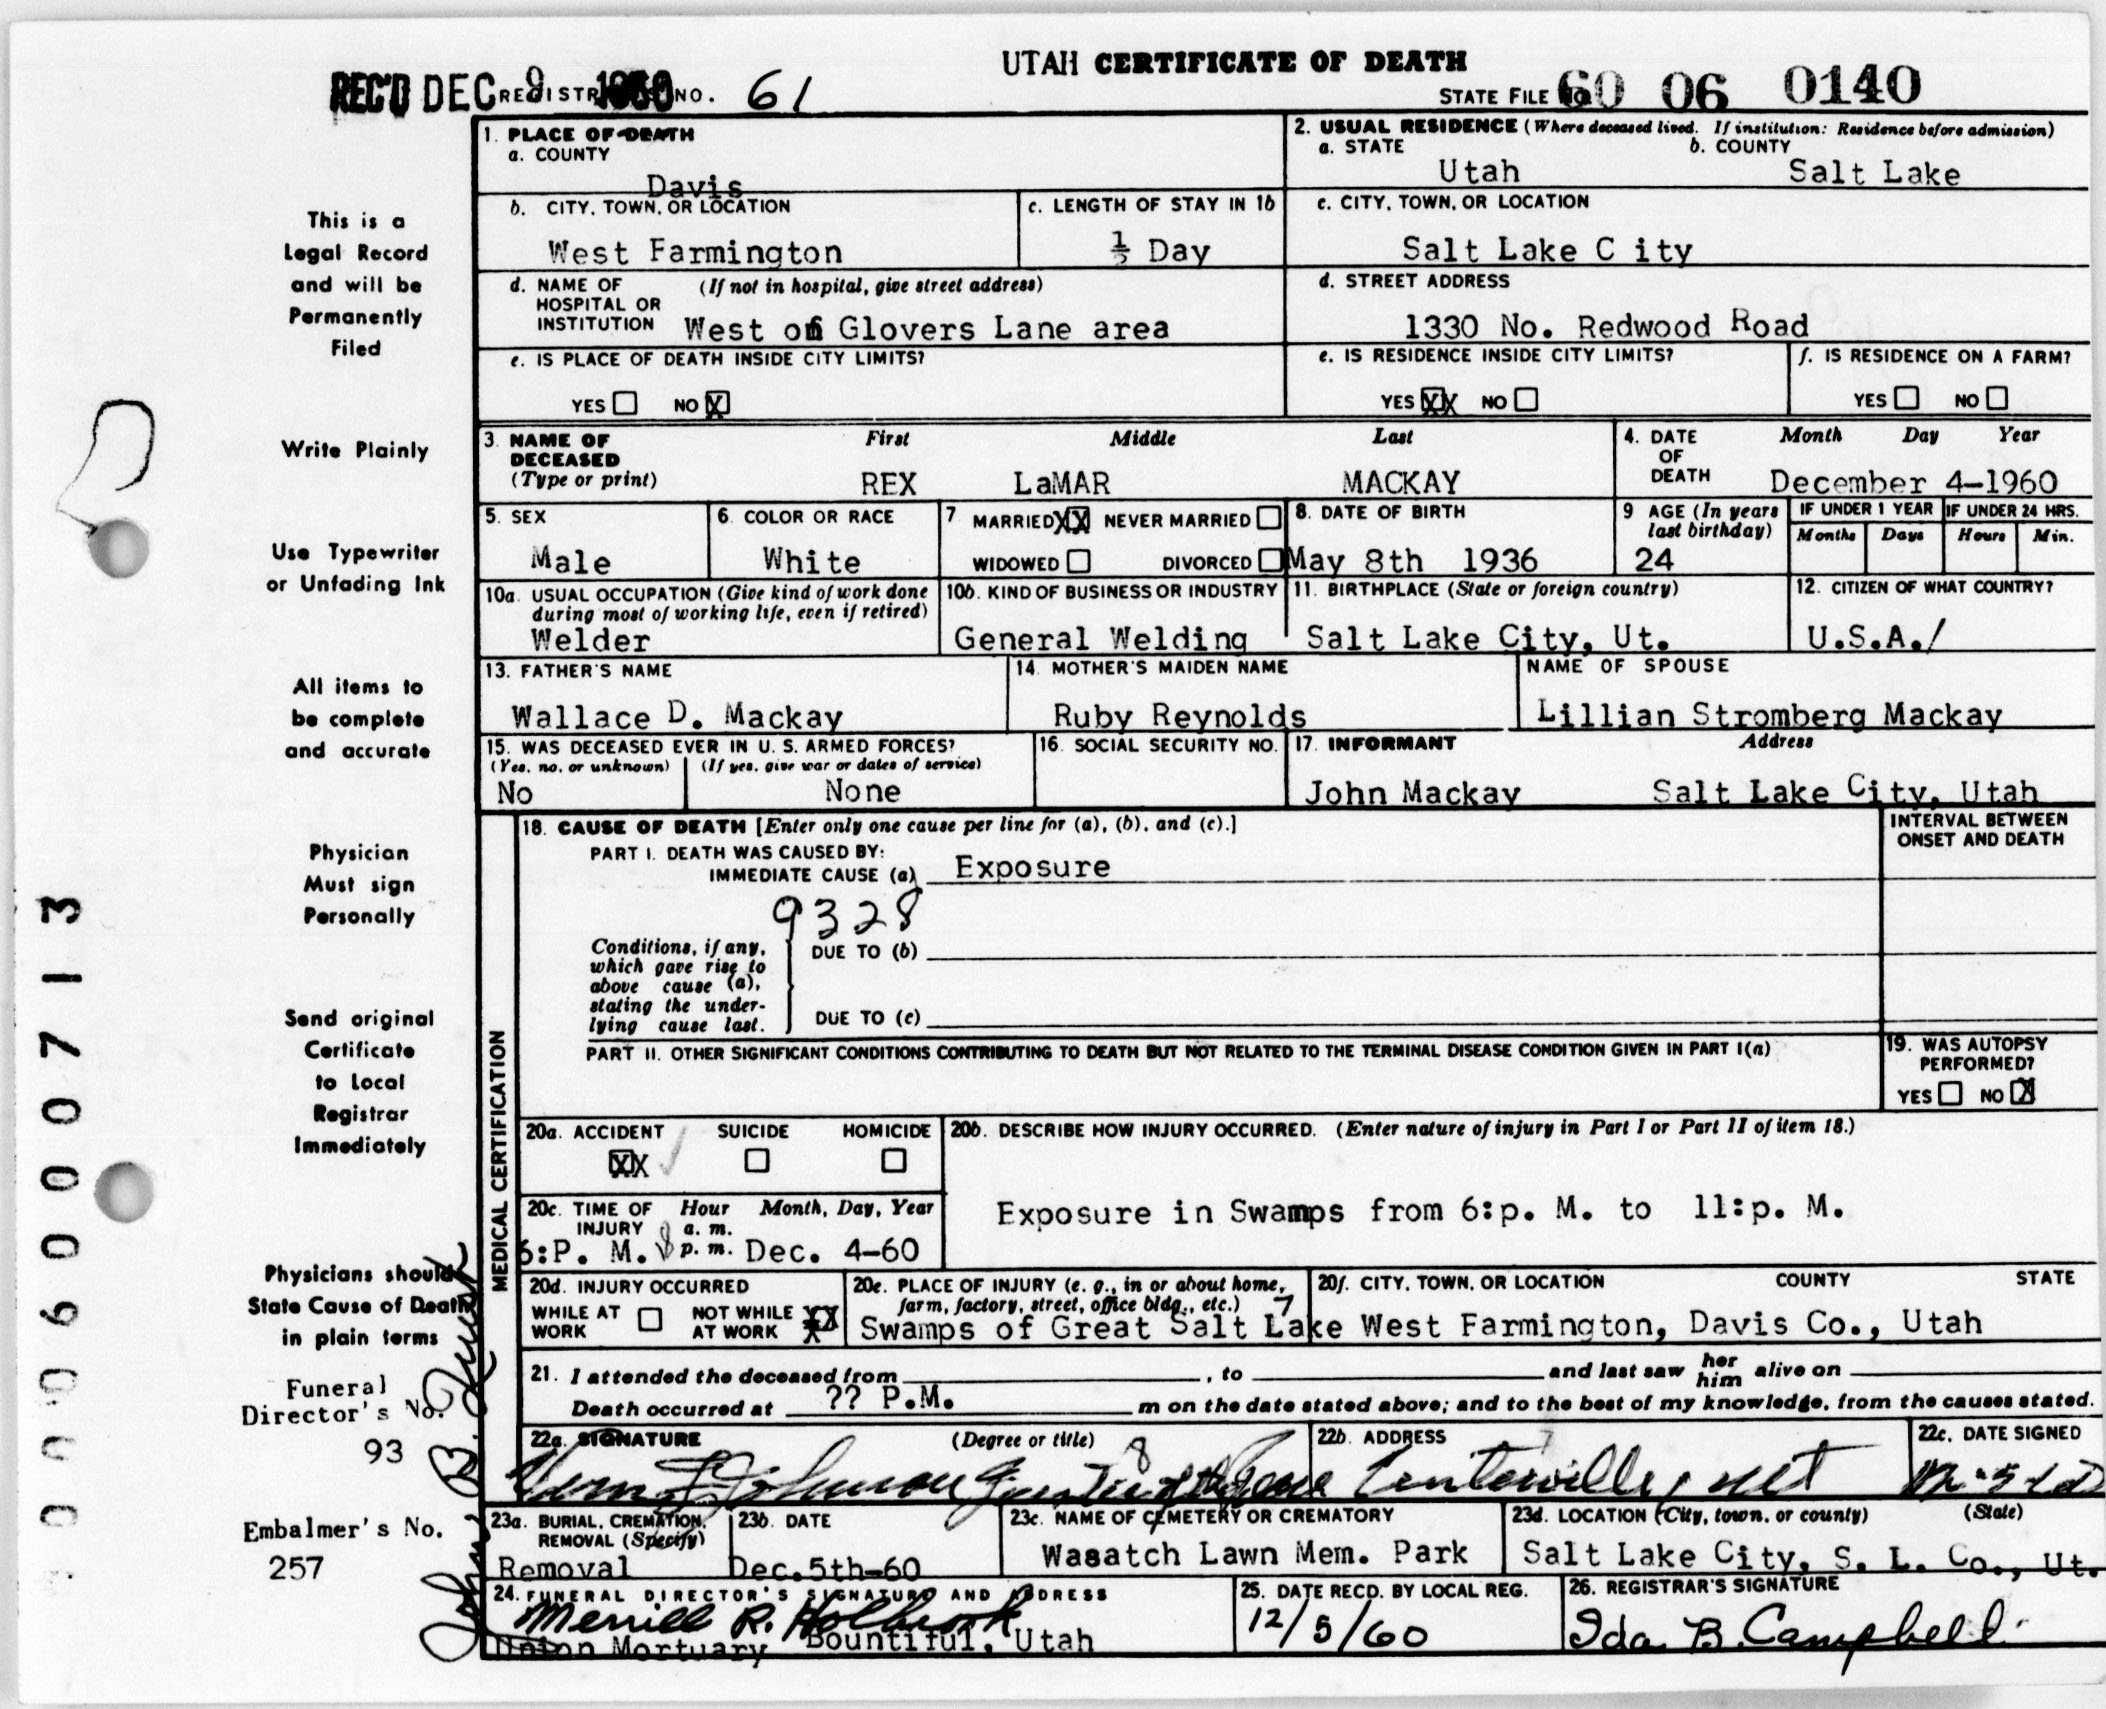 UTAH CERTIFICATE OF DEATH
REC'D DEC 9 1960 REGISTRAR'S NO. 61
STATE FILE NO. 60 06 0140
1. PLACE OF DEATH
a. COUNTY
Davis
2. USUAL RESIDENCE (Where deceased lived. If institution: Residence before admission)
a. STATE b. COUNTY
Utah Salt Lake
b. CITY, TOWN, OR LOCATION
West Farmington
c. LENGTH OF STAY IN 1b
½ Day
c. CITY, TOWN, OR LOCATION
Salt Lake C ity
d. NAME OF HOSPITAL OR INSTITUTION (If not in hospital, give street address)
West of Glovers Lane area
d. STREET ADDRESS
1330 No. Redwood Road
e. IS PLACE OF DEATH INSIDE CITY LIMITS?
YES NO X
e. IS RESIDENCE INSIDE CITY LIMITS?
YES XX NO
f. IS RESIDENCE ON A FARM?
YES NO
3. NAME OF DECEASED (Type or print) First Middle Last
REX LaMAR MACKAY
4. DATE OF DEATH Month Day Year
December 4-1960
5. SEX
Male
6. COLOR OR RACE
White
7. MARRIED XX NEVER MARRIED
WIDOWED DIVORCED
8. DATE OF BIRTH
May 8th 1936
9. AGE (In years last birthday)
24
IF UNDER 1 YEAR
Months Days
IF UNDER 24 HRS.
Hours Min.
10a. USUAL OCCUPATION (Give kind of work done during most of working life, even if retired)
Welder
10b. KIND OF BUSINESS OR INDUSTRY
General Welding
11. BIRTHPLACE (State or foreign country)
Salt Lake City, Ut.
12. CITIZEN OF WHAT COUNTRY?
U.S.A./
13. FATHER'S NAME
Wallace D. Mackay
14. MOTHER'S MAIDEN NAME
Ruby Reynolds
NAME OF SPOUSE
Lillian Stromberg Mackay
15. WAS DECEASED EVER IN U. S. ARMED FORCES?
(Yes, no, or unknown) (If yes, give war or dates of service)
No None
16. SOCIAL SECURITY NO.
17. INFORMANT Address
John Mackay Salt Lake City, Utah
MEDICAL CERTIFICATION
18. CAUSE OF DEATH [Enter only one cause per line for (a), (b), and (c).]
INTERVAL BETWEEN ONSET AND DEATH
PART I. DEATH WAS CAUSED BY:
IMMEDIATE CAUSE (a) Exposure
9328
Conditions, if any, which gave rise to above cause (a), stating the underlying cause last.
DUE TO (b)
DUE TO (c)
PART II. OTHER SIGNIFICANT CONDITIONS CONTRIBUTING TO DEATH BUT NOT RELATED TO THE TERMINAL DISEASE CONDITION GIVEN IN PART I(a)
19. WAS AUTOPSY PERFORMED?
YES NO X
20a. ACCIDENT SUICIDE HOMICIDE
XX
20b. DESCRIBE HOW INJURY OCCURRED. (Enter nature of injury in Part I or Part II of item 18.)
Exposure in Swamps from 6:p. M. to 11:p. M.
20c. TIME OF INJURY Hour Month, Day, Year
a. m.
6:P. M. p. m. Dec. 4-60
20d. INJURY OCCURRED
WHILE AT WORK NOT WHILE AT WORK XX
20e. PLACE OF INJURY (e. g., in or about home, farm, factory, street, office bldg., etc.) 7
Swamps of Great Salt Lake
20f. CITY, TOWN, OR LOCATION COUNTY STATE
West Farmington, Davis Co., Utah
21. I attended the deceased from , to and last saw her him alive on
Death occurred at ?? P.M. m on the date stated above; and to the best of my knowledge, from the causes stated.
22a. SIGNATURE (Degree or title) 8
Johnson
22b. ADDRESS
Centerville, Ut
22c. DATE SIGNED
23a. BURIAL, CREMATION, REMOVAL (Specify)
Removal
23b. DATE
Dec.5th-60
23c. NAME OF CEMETERY OR CREMATORY
Wasatch Lawn Mem. Park
23d. LOCATION (City, town, or county) (State)
Salt Lake City, S. L. Co., Ut.
24. FUNERAL DIRECTOR'S SIGNATURE AND ADDRESS
Merrill R. Holbrook
Union Mortuary Bountiful, Utah
25. DATE RECD. BY LOCAL REG.
12/5/60
26. REGISTRAR'S SIGNATURE
Ida B. Campbell
This is a
Legal Record
and will be
Permanently
Filed
Write Plainly
Use Typewriter
or Unfading Ink
All items to
be complete
and accurate
Physician
Must sign
Personally
Send original
Certificate
to Local
Registrar
Immediately
Physicians should
State Cause of Death
in plain terms
Funeral
Director's No.
93
Embalmer's No.
257
John B.
0 0 0 6 0 0 7 1 3